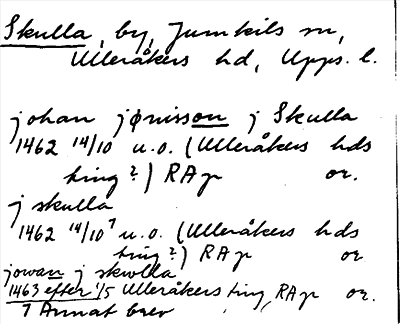 Skulla, by, Jumkils sn,
Ulleråkers hd, Upps. l.
johan jønisson j Skulla
1462 14/10 u.o. (Ulleråkers hds
ting?) RAp or.
j skulla
1462 14/10 7 u.o. (Ulleråkers hds
ting?) RAp or
jowan j skwlla
1463 efter 1/5 Ulleråkers ting, RAp or.
7 Annat brev